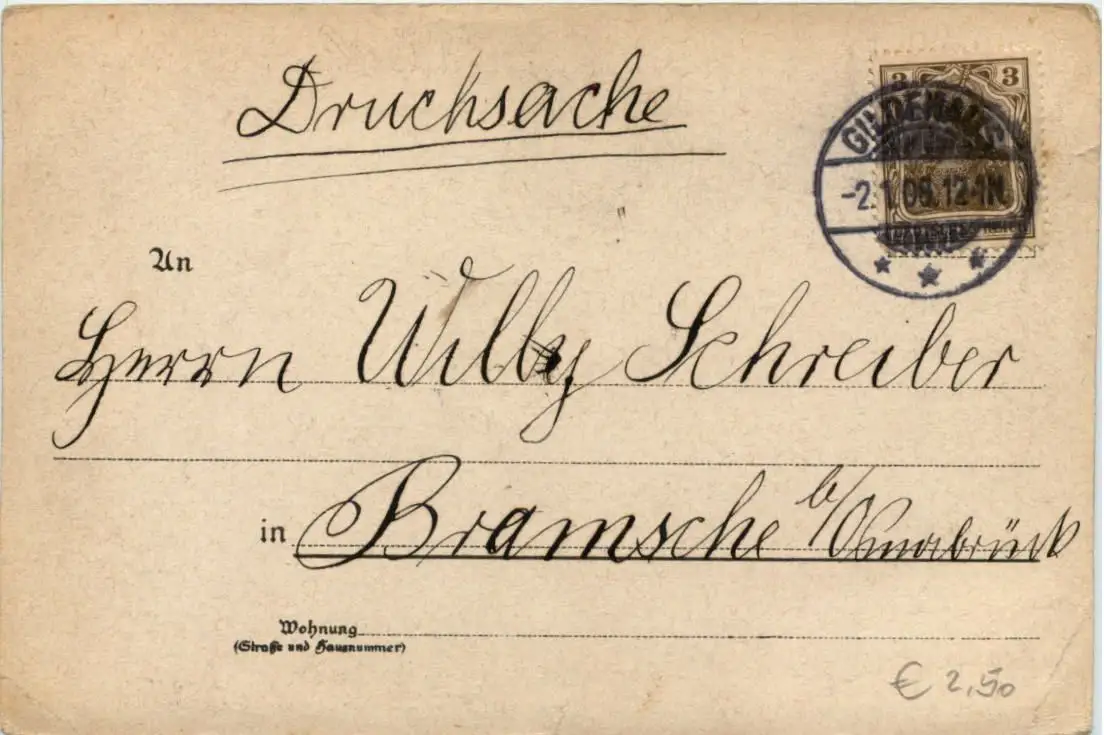 Drucksache
3 3
GILDEHAUS
-2.1.06.12-1N.
An
Herrn Willy Schreiber
in Bramsche b/Osnabrück
Wohnung
(Straße und Hausnummer)
€ 2,50